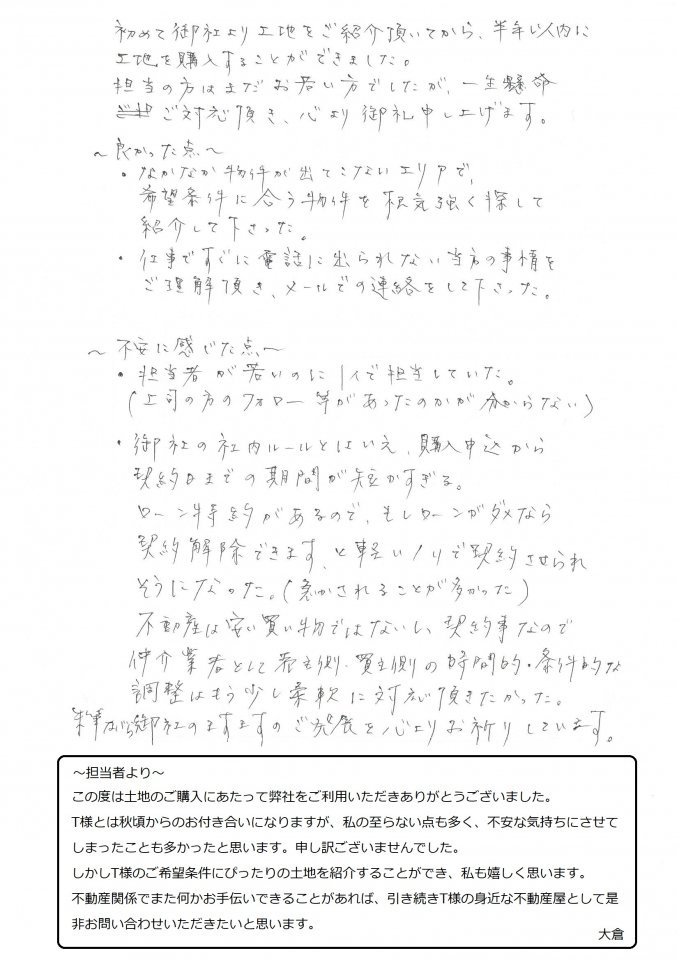 初めて御社より土地をご紹介頂いてから、半年以内に
土地を購入することができました。
担当の方はまだお若い方でしたが、一生懸命
ご対応頂き、心より御礼申し上げます。
～良かった点～
・なかなか物件が出てこないエリアで、
希望条件に合う物件を根気強く探して
紹介して下さった。
・仕事ですぐに電話に出られない当方の事情を
ご理解頂き、メールでの連絡をして下さった。
～不安に感じた点～
・担当者が若いのに1人で担当していた。
(上司の方のフォロー等があったのかが分からない)
・御社の社内ルールとはいえ、購入申込から
契約日までの期間が短かすぎる。
ローン特約があるので、もしローンがダメなら
契約解除できます、と軽いノリで契約させられ
そうになった。(急かされることが多かった)
不動産は安い買い物ではないし、契約事なので
仲介業者として売主側・買主側の時間的・条件的な
調整はもう少し柔軟に対応頂きたかった。
末筆ながら御社のますますのご発展を心よりお祈りしています。
～担当者より～
この度は土地のご購入にあたって弊社をご利用いただきありがとうございました。
T様とは秋頃からのお付き合いになりますが、私の至らない点も多く、不安な気持ちにさせて
しまったことも多かったと思います。申し訳ございませんでした。
しかしT様のご希望条件にぴったりの土地を紹介することができ、私も嬉しく思います。
不動産関係でまた何かお手伝いできることがあれば、引き続きT様の身近な不動産屋として是
非お問い合わせいただきたいと思います。
大倉